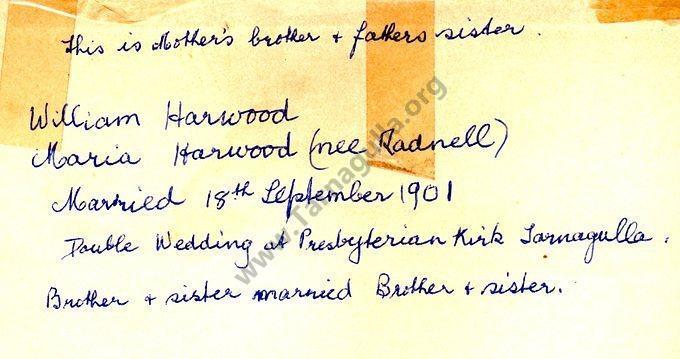 This is Mother's brother + fathers sister.
William Harwood
Maria Harwood (nee Radnell)
Married 18th September 1901
Double Wedding at Presbyterian Kirk Tarnagulla.
Brother + sister married Brother + sister.
www.Tarnagulla.org